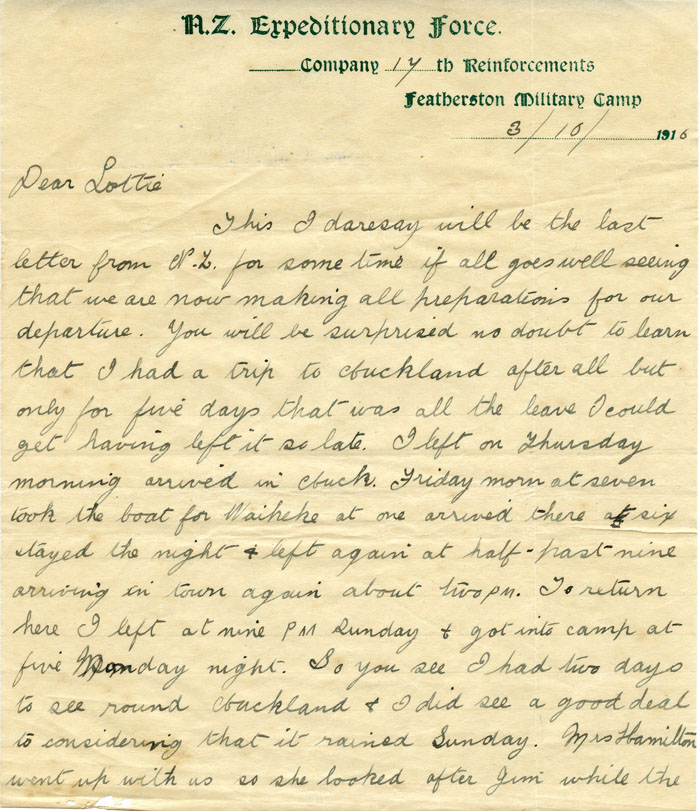 N.Z. Expeditionary Force.
Company 17th Reinforcements
Featherston Military Camp
3/10/1916
Dear Lottie
This I daresay will be the last
letter from N.Z. for some time if all goes well seeing
that we are now making all preparations for our
departure. You will be surprised no doubt to learn
that I had a trip to Auckland after all but
only for five days that was all the leave I could
get having left it so late. I left on Thursday
morning arrived in Auck. Friday morn at seven
took the boat for Waiheke at one arrived there at six
stayed the night & left again at half-past nine
arriving in town again about two pm. To return
here I left at nine PM Sunday & got into camp at
five Monday night. So you see I had two days
to see round Auckland & I did see a good deal
to considering that it rained Sunday. Mrs Hamilton
went up with us so she looked after Jim while the